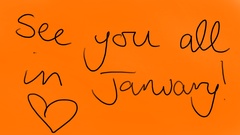 See you all
in January!